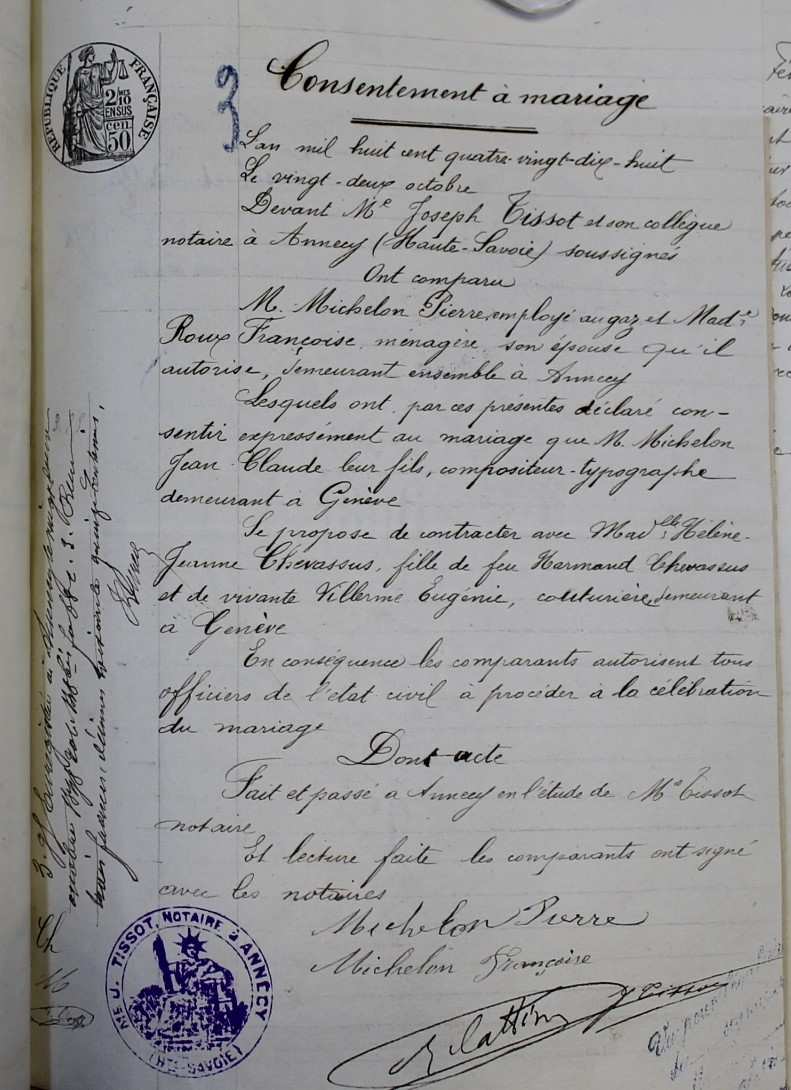 RÉPUBLIQUE FRANÇAISE
2/10
EN SUS
cen
50
3
Consentement à mariage
L'an mil huit cent quatre-vingt-dix-huit
Le vingt-deux octobre
Devant Me Joseph Tissot et son collègue
notaire à Annecy (Haute-Savoie) soussignés
Ont comparu
M. Michelon Pierre, employé au gaz et Made
Roux Françoise, ménagère, son épouse qu'il
autorise, demeurant ensemble à Annecy
Lesquels ont par ces présentes déclaré con-
sentir expressément au mariage que M. Michelon
Jean-Claude leur fils, compositeur-typographe
demeurant à Genève
Se propose de contracter avec Madelle Hélène-
Jeanne Chevassus, fille de feu Harmand Chevassus
et de vivante Villerme Eugénie, couturière, demeurant
à Genève
En conséquence les comparants autorisent tous
officiers de l'état civil à procéder à la célébration
du mariage
Dont acte
Fait et passé à Annecy en l'étude de Me Tissot
notaire
Et lecture faite les comparants ont signé
avec les notaires
Michelon Pierre
Michelon Françoise
J Tissot
ME J. TISSOT, NOTAIRE à ANNECY
(HTE-SAVOIE)